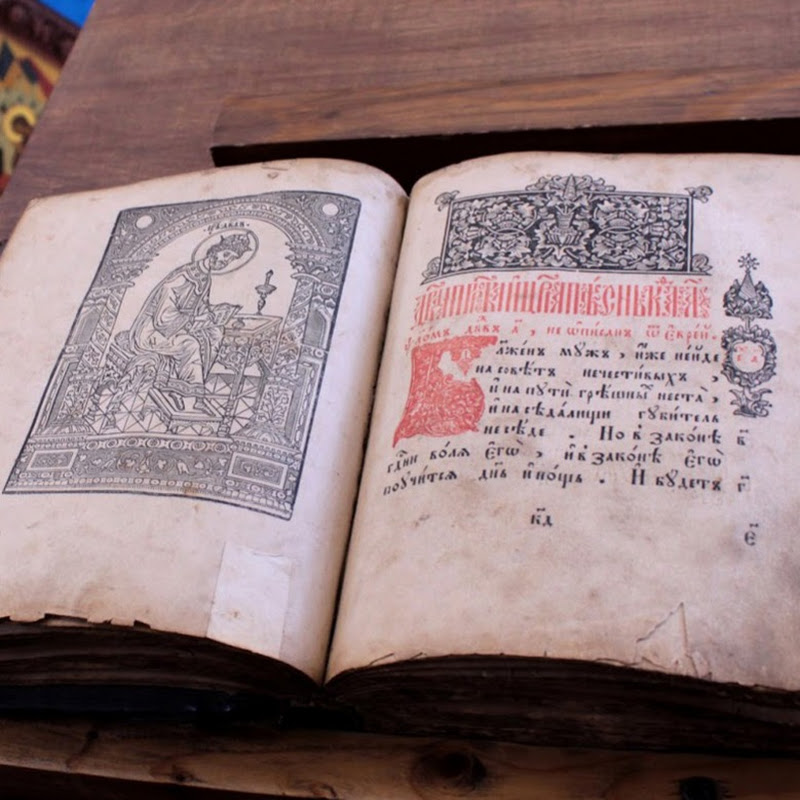 ѱало́мъ дв҃двъ а҃, не ѡ҆писанъ ѿ є҆врей.
Блаженъ мужъ, и҆же не и҆де
на совѣтъ нечестивыхъ,
и҆ на пути грѣшныⷯ не ста,
и҆ на сѣдалищи губитель
не сѣде. Но в законѣ в҃
гдⷭни волѧ є҆гѡ̀, и҆ в законѣ є҆гѡ̀
поучитсѧ дн҃ь и҆ нощь. И҆ будетъ г҃
к҃д
є҃